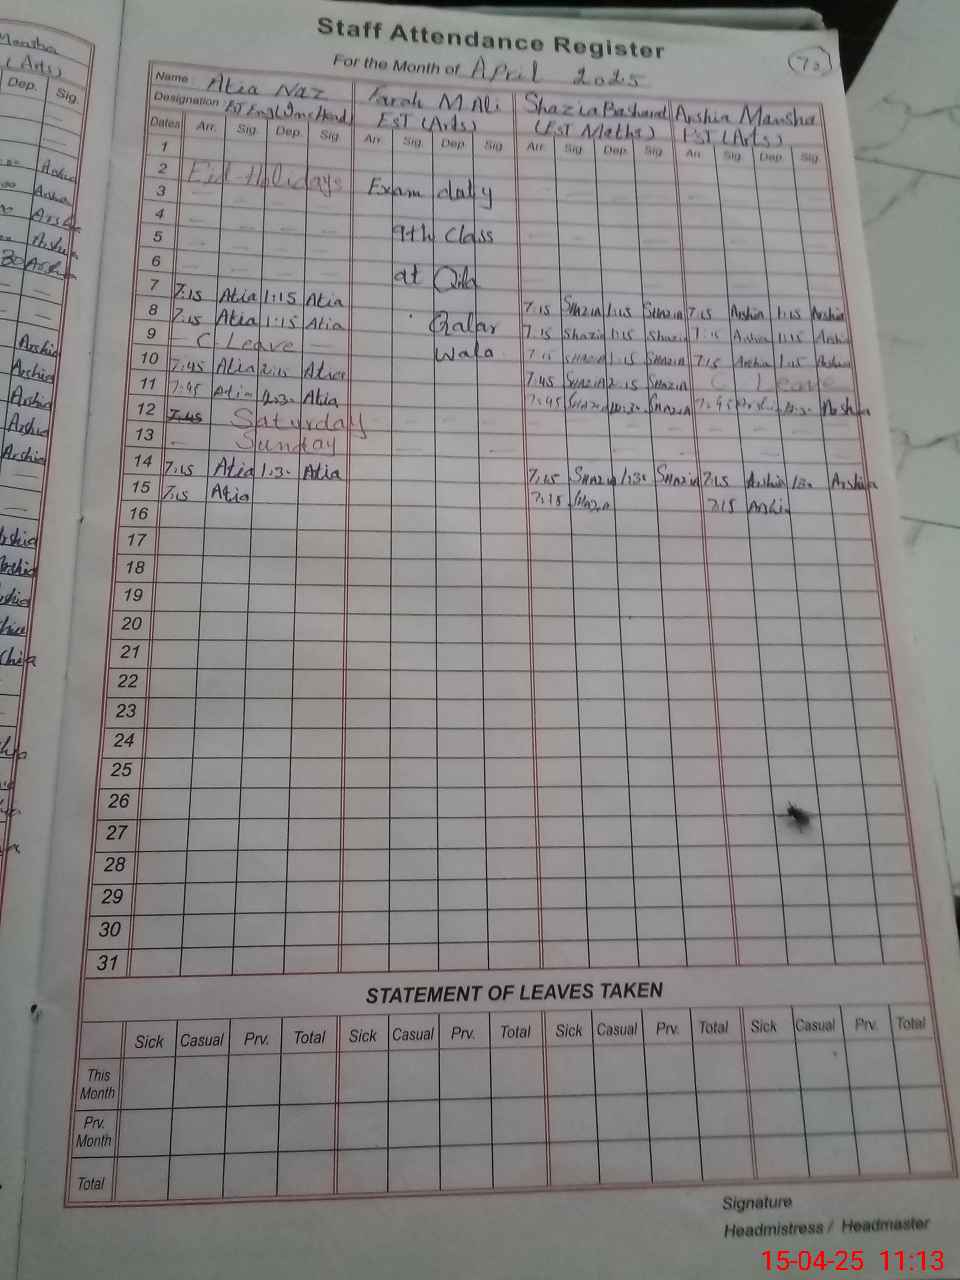 Staff Attendance Register
For the Month of April 2025
Name Atia Naz Farah M.Ali Shazia Basharat Arshia Mansha
Designation EST (Arts) (EST Maths) EST (Arts)
Dates Arr. Sig. Dep. Sig. Arr. Sig. Dep. Sig. Arr. Sig. Dep. Sig. Arr. Sig. Dep. Sig.
1
2 Eid Holidays Exam duty
3
4 9th Class
5
6 at Qila
7 7:15 Atia 1:15 Atia 7:15 Shazia 1:15 Shazia 7:15 Arshia 1:15 Arshia
8 7:15 Atia 1:15 Atia 7:15 Shazia 1:15 Shazia 7:15 Arshia 1:15 Arshia
9 C. Leave Wala 7:15 Shazia 1:15 Shazia 7:15 Arshia 1:15 Arshia
10 7:45 Atia 2:15 Atia 7:45 Shazia 2:15 Shazia C Leave
11 7:45 Atia 12:30 Atia 7:45 Shazia 12:30 Shazia 7:45 Arshia 12:30 Arshia
12 7:45 Saturday
13 Sunday
14 7:15 Atia 1:30 Atia 7:15 Shazia 1:30 Shazia 7:15 Arshia 1:30 Arshia
15 7:15 Atia 7:15 Shazia 7:15 Arshia
16
17
18
19
20
21
22
23
24
25
26
27
28
29
30
31
STATEMENT OF LEAVES TAKEN
Sick Casual Prv. Total Sick Casual Prv. Total Sick Casual Prv. Total Sick Casual Prv. Total
This Month
Prv. Month
Total
Signature
Headmistress / Headmaster
15-04-25 11:13